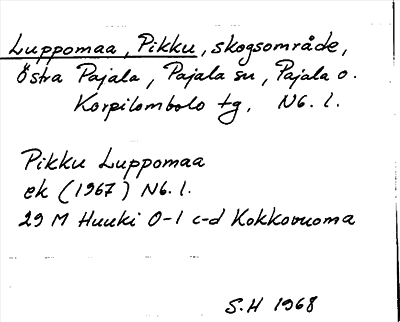 Luppomaa, Pikku, skogsområde,
Östra Pajala, Pajala sn, Pajala o.
Korpilombolo tg, Nb. l.
Pikku Luppomaa
ek (1967) Nb. l.
29 M Huuki 0-1 c-d Kokkovuoma
S.H 1968